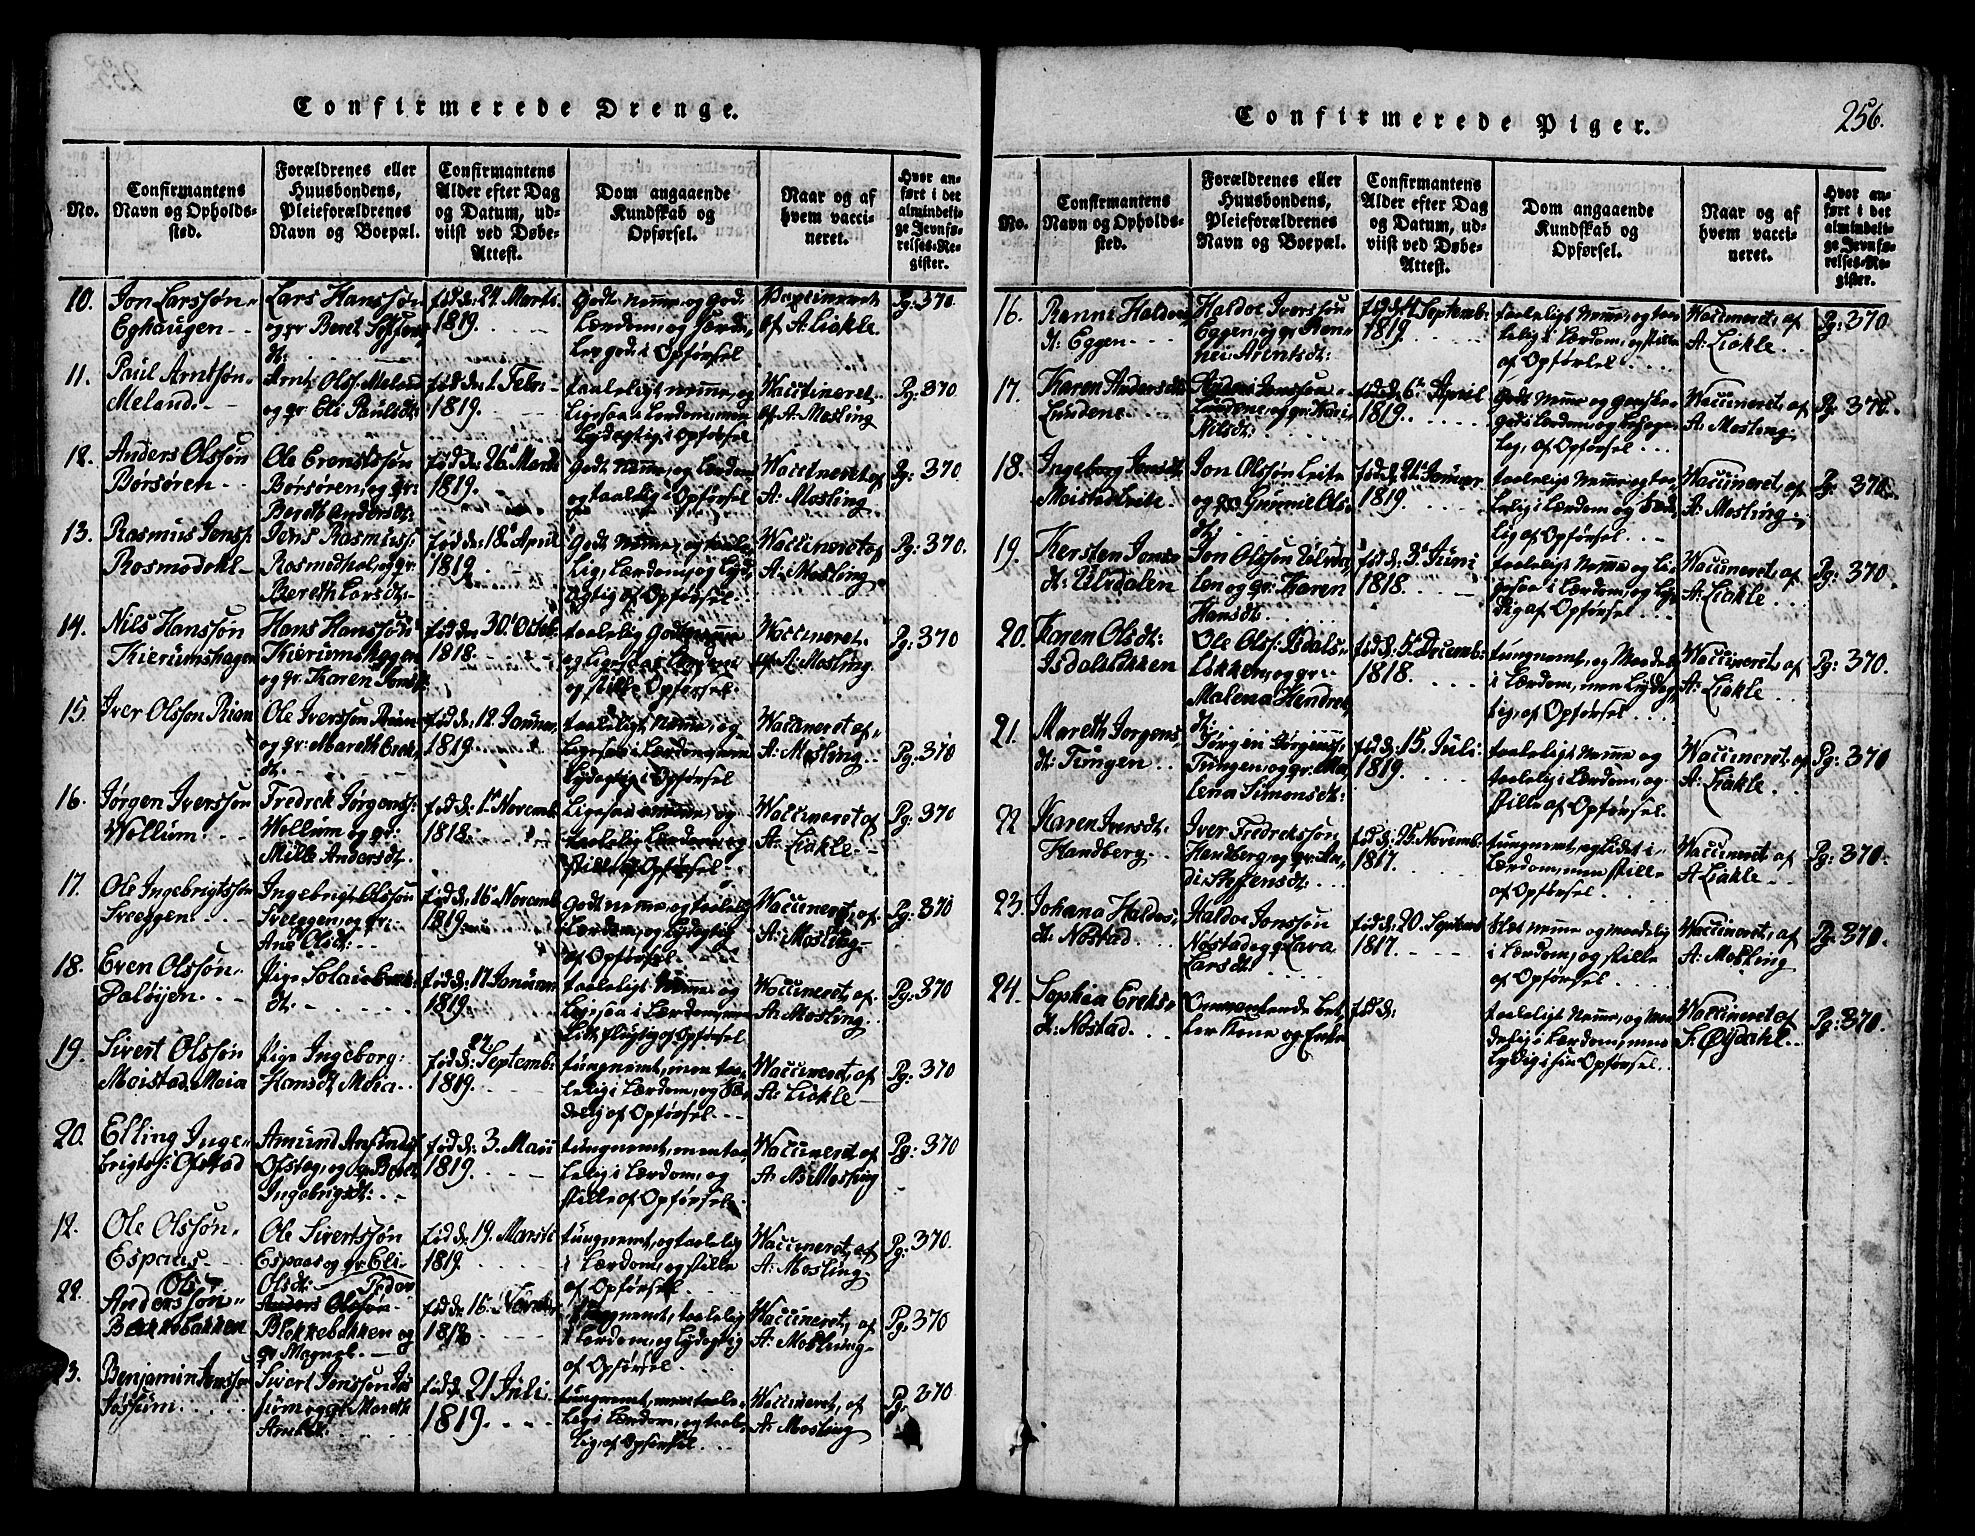 Confirmerede Drenge.
No.
Confirmantens
Navn og Opholds-
sted.
Forældrenes eller
Huusbondens,
Pleieforældrenes
Navn og Boepæl.
Confirmantens
Alder efter Dag
og Datum, ud-
viist ved Døbe-
Attest.
Dom angaaende
Kundskab og
Opførsel.
Naar og af
hvem vacci-
neret.
Hvor an-
ført i det
almindeli-
ge Jevnfø-
relses-Re-
gister.
10.
Jon Larssøn
Eghaugen
Lars Hanssøn
og gr Beret
dt:
fød d: 24. Marts
1819.
Godt Nemme, og God
Lærdom, og
god i Opførsel
af A: Liakle.
Pg: 370
11.
Paul Arntsøn
Meland.
Arnt Olss: Meland
og gr: Eli Paulsdt:
fød d: 1. Febr:
1819.
taaleligt nemme, og
Ligesaa i Lærdom, men
Lydagtig i Opførsel
Waccineret
af A: Mosling
Pg: 370
12.
Anders Olssøn
Børsøren
Ole Evenssøn
Børsøren, og gr:
Bereth Andersdt:
fød d: 26de Marts
1819.
Godt Nemme, og Lærdom
og taalelig i Opførsel
Waccineret af
A: Mosling.
Pg: 370
13.
Rasmus Jenss:
Rosmodehl
Jens Rasmuss:
Rosmodhol, og gr:
Bereth Larsdt:
fød d: 18de April
1819.
Godt Nemme, og taale-
lig i Lærdom, og Lyd,
agtig af Opførsel.
Waccineret af
A: Mosling.
Pg: 370.
14.
Nils Hanssøn
Kierumshagen
Hans Hanssøn
Kierumshagen
og gr: Karen Jonsdt:
fød den 30. Octob.
1818.
taalelig Godt nemme
og Ligesaa i Lærdom
og stille Opførsel.
Waccineret
af A: Mosling.
Pg: 370
15.
Iver Olsson Rian
Ole Iverssøn Rian
og gr: Mareth Erek,
dt.
fød d: 12. Januar,
1819.
taaleligt Nemme, og
Ligesaa i Lærdom, men
Lydagtig i Opførsel
Waccineret af
A: Mosling.
Pg: 370
16.
Jørgen Iverssøn
Wollum.
Fredrek Jørgenss:
Wollum og gr:
Mille Andersdt:
fød d: 1e Novemb
1818.
Ligesaa nemme, og
taalelig Lærdom, og
stille af Opførsel.
Waccineret af
A: Liakle.
Pg: 370
17.
Ole Ingebrigtssøn
Sveeggen.
Ingebrigt Olssøn
Sveeggen, og gr:
Ane Olsdt:
fød d: 16de Novemb
1819.
Godt nemme, og taalelig
Lærdom, og Lydagtig
af Opførsel.
Waccineret, af
A: Mosling.
Pg: 370
18.
Even Olssøn
Daløyen.
Pige
dt.
fød d: 17 Januar
1819.
taaleligt Nemme og
Ligesaa i Lærdom, men
Opførsel
Waccineret, af
A: Mosling.
Pg: 370
19.
Sivert Olssøn
Moistad, Moia
Pige Ingeborg
Hansdt, Moia.
27.
fød d: Septemb:
1819.
tungnemt, men taa-
lelig i Lærdom, og Sæ-
delig af Opførsel.
Waccineret, af
A: Liakle
Pg: 370
20.
Elling Inge-
brigtss: Ofstad
Amund
og Beret
Ingebrigsdt:
fød d: 3. Maii
1819.
tungnemt, men taa-
lelig i Lærdom, og
stille af Opførsel.
Waccineret af
A: Mosling
Pg: 370
12.
Ole Olssøn.
Espaas
Ole Sivertssøn
Espaas og gr: Eli
Olsdt:
fød d: 19. Marsti
1819.
tungnemt, og taalelig
i Lærdom, og stille
af Opførsel.
Waccineret, af
A: Mosling.
Pg: 370.
22.
Ols
Anderssøn
Bekkebakken
Peder
Anders Olssøn
Blekkebakken og
gr Magnhl.
fød d: 16.
tungnemt, taalelig
i Lærdom, og Lydagtig
af Opførsel.
Waccineret, af
A: Mosling.
Pg: 370
23.
Benjamin Jonssøn
Jossum.
Sivert Jonssøn Jos
sum og gr Mareth
fød d: 21 Juli
1819.
tungnemt, men taale-
lig i Lærdom, og taale-
lig, af Opførsel.
Waccineret, af
A: Mosling
Pg: 370
Confirmerede Piger.
256.
No.
Confirmantens
Navn og Opholds-
sted.
Forældrenes eller
Huusbondens,
Pleieforældrenes
Navn og Boepæl.
Confirmantens
Alder efter Dag
og Datum, ud-
viist ved Døbe-
Attest.
Dom angaaende
Kundskab og
Opførsel.
Naar og af
hvem vacci-
neret.
Hvor an-
ført i det
almindeli-
ge Jevnfø-
relses-Re-
gister.
16.
Renni Haldos,
dt. Eggen
Haldoe Iverssøn
Eggen, og gr: Ren-
nei: Arentsdt:
fød d: 4 Septemb:
1819.
taaleligt Nemme, og taa-
lelig i Lærdom, og stille
af Opførsel.
Waccineret, af
A: Liakle.
Pg: 370
17.
Karen Andersdt:
Lundene.
Anders Jonssøn
Lundene, og gr: Kari
Nilsdt:
fød d: 6te April
1819.
Godt Nemme og ganske
God i Lærdom, og behage-
lig, af Opførsel.
Waccineret, af
A: Mosling:
Pg: 370.
18.
Ingeborg Jonsdt.
Moistadleite
Jon Olssøn Leite
og gr Gunnil Ols-
dt.
fød d: 21de Januar
1819.
taaleligt Nemme og taa-
lelig i Lærdom og Sæd,
lig af Opførsel.
Waccineret, af
A: Mosling.
Pg: 370.
19.
Kersten Jons-
dt. Ulsdalen
Jon Olssøn Ulsda,
len og gr: Karen
Hansdt:
fød d: 3de Juni
1818.
taaleligt Nemme og Li-
gesaa i Lærdom, og Ly-
dig af Opførsel.
Waccineret, af
A: Liakle.
Pg: 370.
20.
Karen Olsdt:
Isdalsløkken
Ole Olss: Isdals-
Løkken, og gr:
Malena Hendrek,
dt:
fød d: 5te Decemb:
1818.
tungnemt, og Maadel:
i Lærdom, men Lydag-
tig, af Opførsel.
Waccineret, af
A: Liakle.
Pg: 370.
21.
Mareth Jorgens,
dt: Tungen.
Jørgen Jørgenss:
Tungen, og gr: Ma-
lena Simonsdt:
fød d: 15. Juli:
1819.
taaleligt Nemme og
taalelig i Lærdom, og
stille af Opførsel.
Waccineret, af
A: Liakle.
Pg: 370
22
Karen Iversdt.
Handberg.
Iver Fredrekssøn
Handberg, og gr: An,
di Steffensdt:
fød d: 25. Novemb:
1817.
tungnemt, og Lidet i
Lærdom, men stille
af Opførsel.
Waccineret af
A Liakle.
Pg: 370.
23.
Johana Haldos,
dt. Nøstad.
Haldoe Jonssøn
Nøstad og gr Lava
Larsdt:
fød d: 20. Septemb:
1817.
Slet nemme og maadelig
i Lærdom, og stille
af Opførsel.
Waccineret, af
A: Mosling
Pg: 370.
24.
Sophia Ereks-
dt. Nøstad.
Omvankende Bet
ler Kone og Enke
fød d:
taaleligt Nemme, og maa
delig i Lærdom, men
Lydig i sin Opførsel.
Waccineret af
F. Øisdahl.
Pg: 370.